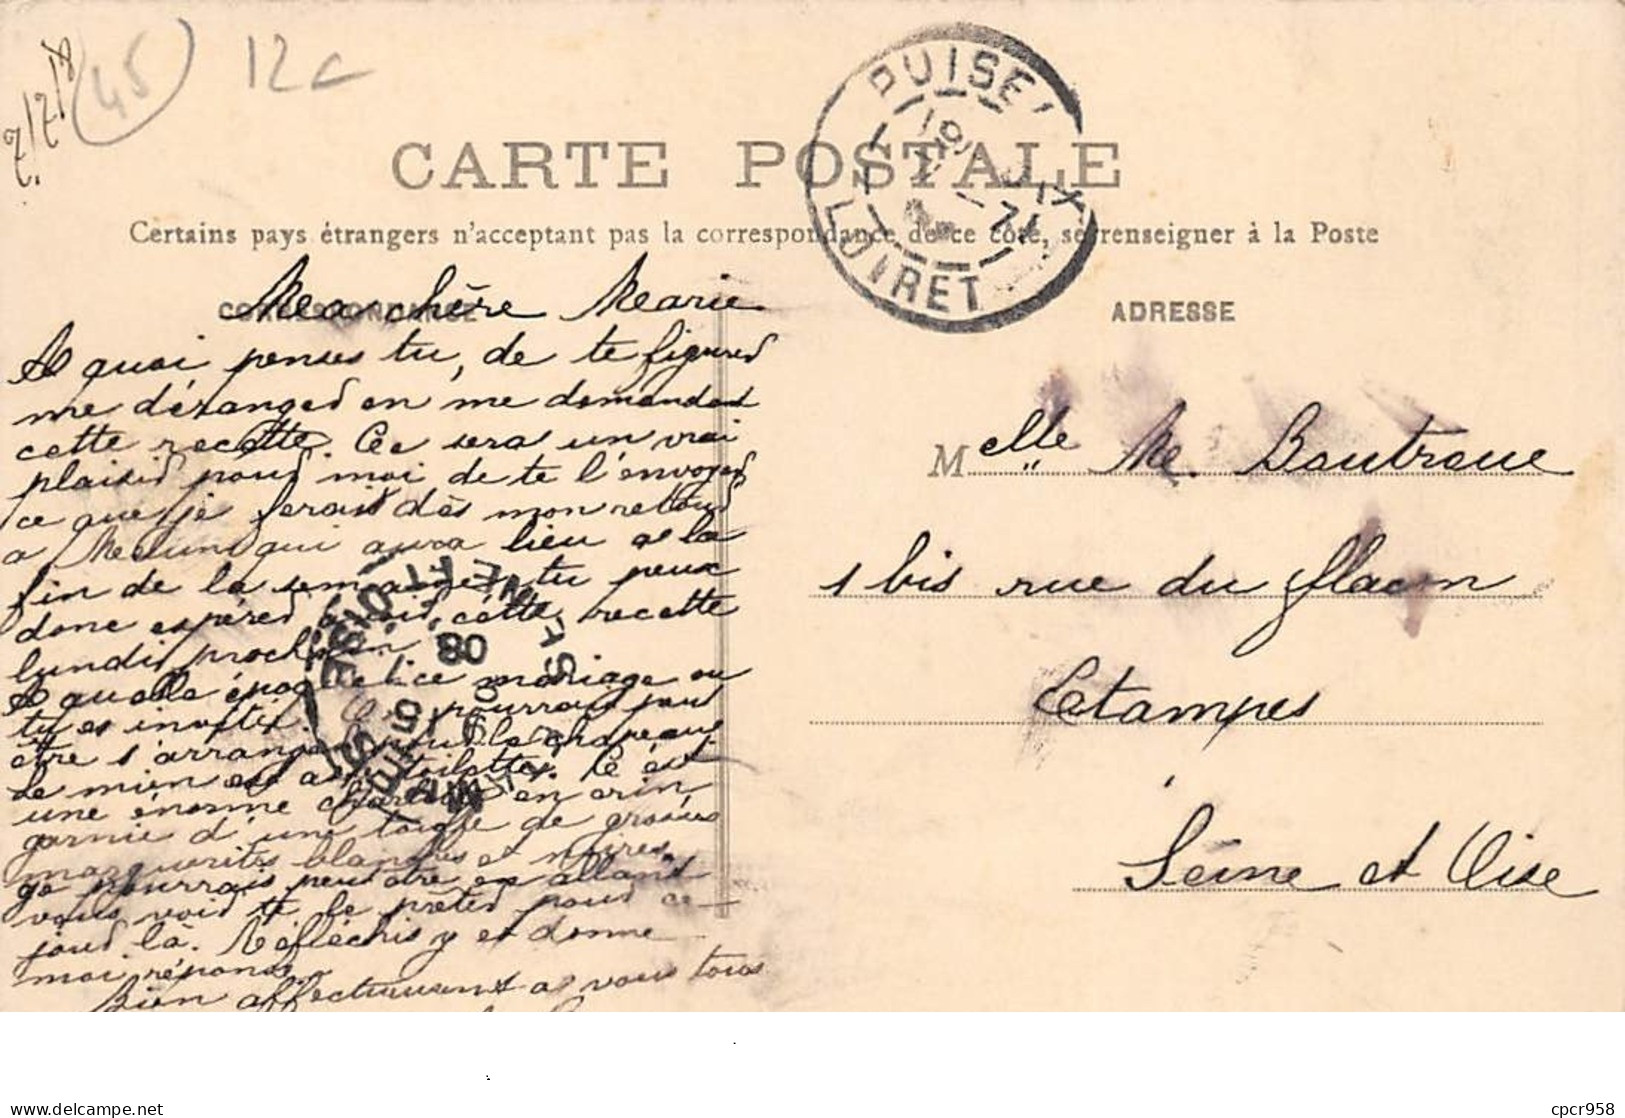 7/7/8
45
12c
PUISEAUX
LOIRET
CARTE POSTALE
Certains pays étrangers n'acceptant pas la correspondance de ce côté, se renseigner à la Poste
CORRESPONDANCE
ADRESSE
Ma chère Marie
A quoi penses tu, de te figurer
me déranger en me demandant
cette recette. Ce sera un vrai
plaisir pour moi de te l'envoyer
ce que je ferais dès mon retour
a Melun qui aura lieu a la
fin de la semaine, tu peux
donc espérer avoir cette recette
lundi prochain
A quelle époque ce mariage ou
tu es invitée. pourrais peut
être s'arranger pour le chapeau
le mien est a toilette. C'est
une énorme charlotte en crin
garnie d'une touffe de grosses
marguerites blanches et noires.
je pourrais peut être en allant
vous voir te le prêter pour ce
jour là. Réfléchis y et donne
moi réponse.
Bien affectueusement a vous tous
SEINE-ET-OISE
08
Melle M. Boutroue
1 bis rue du flacon
Etampes
Seine et Oise
cpcr958